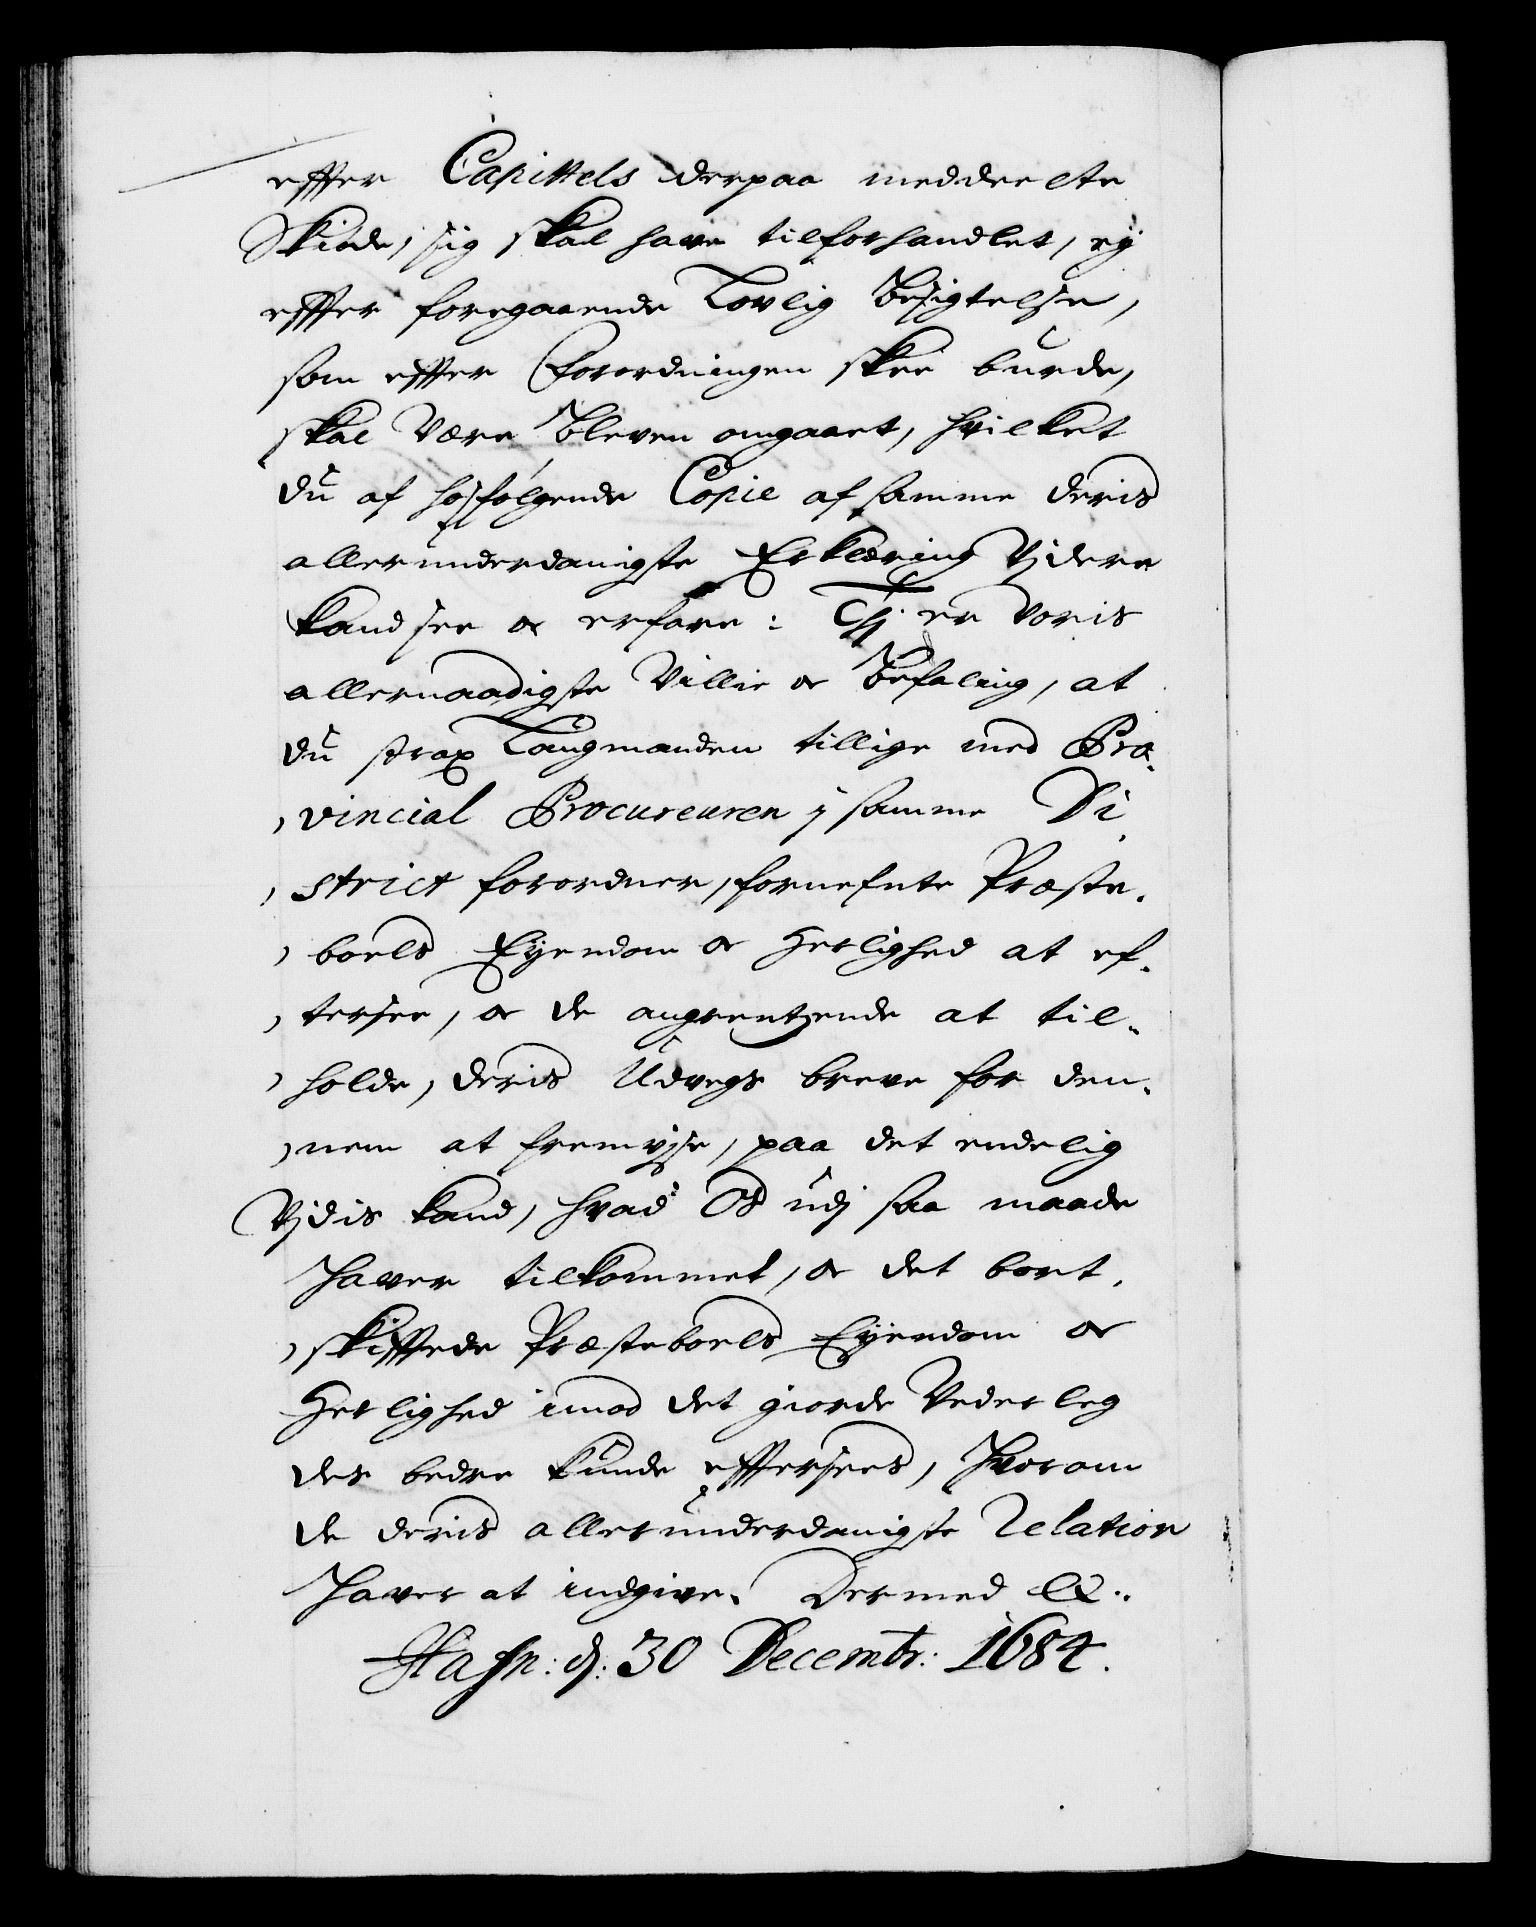 effter Capittels derpaa meddeelte
Skiøde, sig skal have tilforhandlet, ey
effter foregaaende Lovlig Besigtelse,
som effter Forordningen skee burde,
skal være Bleven omgaaet, hvilket
du af hosfølgende Copie af samme deris
allerunderdanigste Erklæring Vjdere
kand see oc erfare: Thj er Voris
allernaadigste Villie oc Befaling, at
du strax Laugmanden tillige med Pro-
vincial Procureuren i samme Di-
strict forordner, fornefnte Præste-
boels Eyendom oc Herlighed at ef-
tersee, oc de angrentzende at til-
holde, deris Udvegs breve for den-
nem at fremvjse, paa det endelig
Vjdis kand, hvad Os udj saa maade
haver tilkommet, oc det bort-
skiffede Præsteboels Eyendom oc
Herlighed imod det giorde Vederleg
des bedre kunde efftersees, Hvorom
de deris allerunderdanigste Relation
haver at indgive. Dermed &.
Hafn: d: 30 Decembr: 1684.